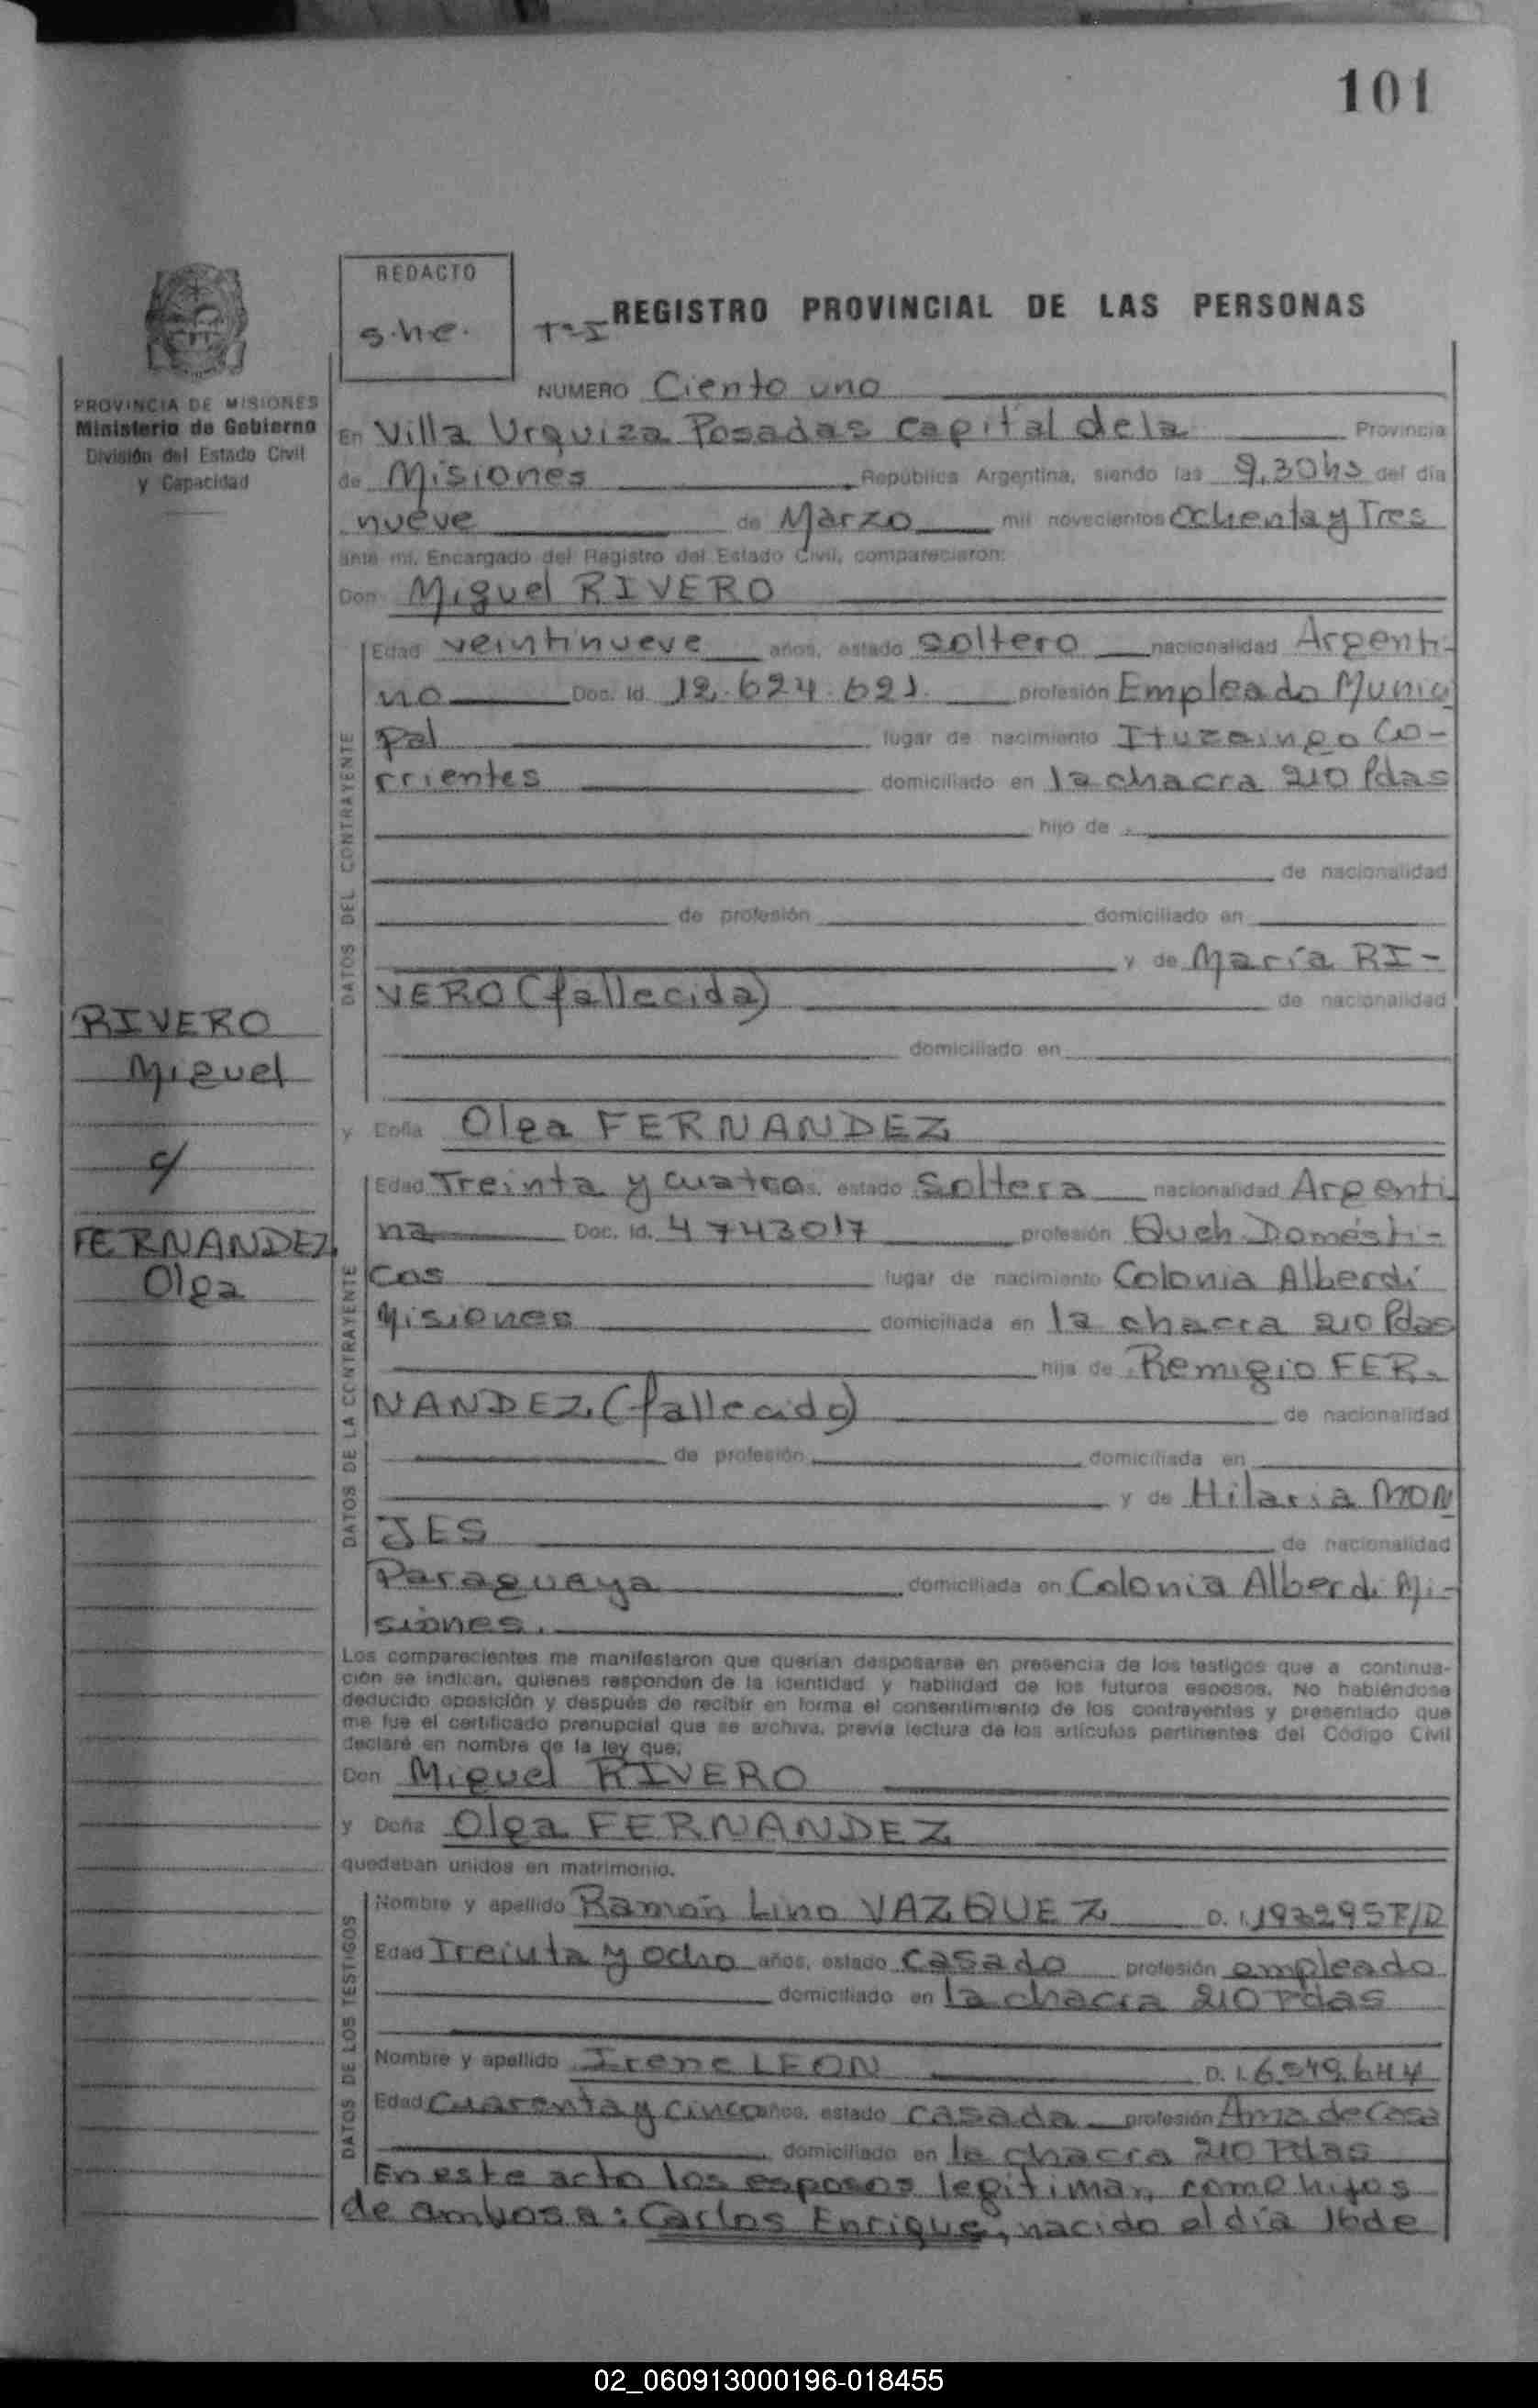 101
REDACTO
s.h.e.
Tº-I REGISTRO PROVINCIAL DE LAS PERSONAS
PROVINCIA DE MISIONES
Ministerio de Gobierno
División del Estado Civil
y Capacidad
NUMERO Ciento uno
En Villa Urquiza Posadas Capital de la Provincia
de Misiones República Argentina, siendo las 9,30hs del día
nueve de Marzo mil novecientos ochenta y Tres
ante mí, Encargado del Registro del Estado Civil, comparecieron:
Don Miguel RIVERO
DATOS DEL CONTRAYENTE
Edad veintinueve años, estado soltero nacionalidad Argenti-
no Doc. Id. 12.624.621. profesión Empleado Munici
pal lugar de nacimiento Ituzaingo Co-
rrientes domiciliado en la chacra 210 Pdas
hijo de
de nacionalidad
de profesión domiciliado en
y de María RI-
VERO (fallecida) de nacionalidad
domiciliado en
RIVERO
Miguel
c/
FERNANDEZ
Olga
y Doña Olga FERNANDEZ
DATOS DE LA CONTRAYENTE
Edad Treinta y cuatro años, estado Soltera nacionalidad Argenti
na Doc. Id. 4743017 profesión Queh. Domésti-
cos lugar de nacimiento Colonia Alberdi
Misiones domiciliada en la chacra 210 Pdas
hija de Remigio FER-
NANDEZ (fallecido) de nacionalidad
de profesión domiciliada en
y de Hilaria MON
JES de nacionalidad
Paraguaya domiciliada en Colonia Alberdi Mi-
siones.
Los comparecientes me manifestaron que querían desposarse en presencia de los testigos que a continua-
ción se indican, quienes responden de la identidad y habilidad de los futuros esposos. No habiéndose
deducido oposición y después de recibir en forma el consentimiento de los contrayentes y presentado que
me fue el certificado prenupcial que se archiva, previa lectura de los artículos pertinentes del Código Civil
declaré en nombre de la ley que:
Don Miguel RIVERO
y Doña Olga FERNANDEZ
quedaban unidos en matrimonio.
DATOS DE LOS TESTIGOS
Nombre y apellido Ramón Lino VAZQUEZ D. I.
Edad Treinta y ocho años, estado casado profesión empleado
domiciliado en la chacra 210 Pdas
Nombre y apellido Irene LEON D. I. 6.549.644
Edad Cuarenta y cinco años, estado casada profesión Ama de Casa
domiciliado en la chacra 210 Pdas
En este acto los esposos legitiman como hijos
de ambos a: Carlos Enrique, nacido el día 16 de
02_060913000196-018455